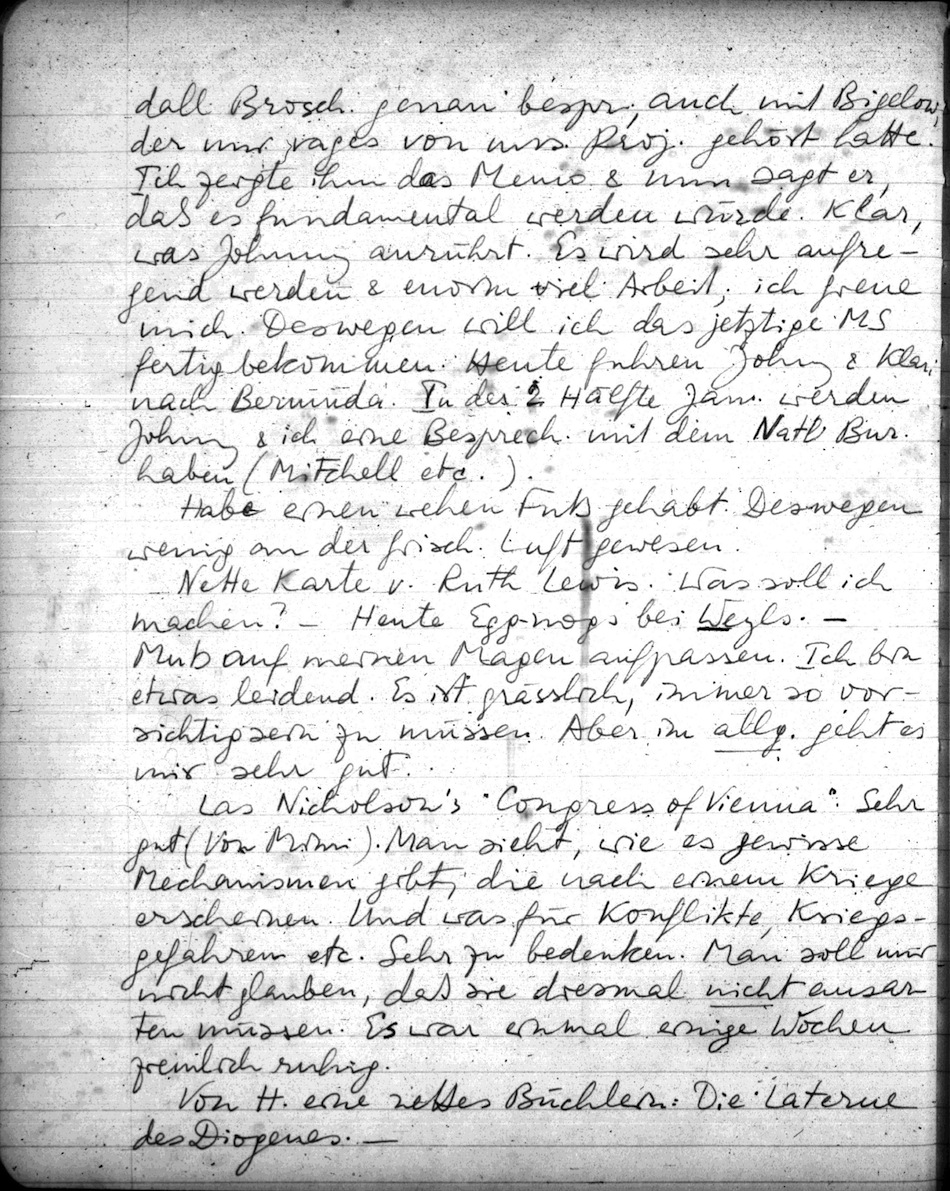 dall Brosch. genau bespr., auch mit Bigelow,
der nur vages von uns. Proj. gehört hatte.
Ich zeigte ihm das Memo & nun sagt er,
daß es fundamental werden würde. Klar,
was Johnny anrührt. Es wird sehr aufre-
gend werden & enorm viel Arbeit; ich freue
mich. Deswegen will ich das jetztige MS
fertig bekommen. Heute fuhren Johnny & Klari
nach Bermuda. In der 2 Hälfte Jan. werden
Johnny & ich eine Besprech. mit dem Natl Bur.
haben (Mitchell etc.).
Habe einen wehen Fuß gehabt. Deswegen
wenig an der frisch. Luft gewesen.
Nette Karte v. Ruth Lewis. Was soll ich
machen? – Heute Egg-nogs bei Weyls. –
Muß auf meinen Magen aufpassen. Ich bin
etwas leidend. Es ist grässlich, immer so vor-
sichtig sein zu müssen. Aber im allg. geht es
mir sehr gut.
Las Nicholson's "Congress of Vienna". Sehr
gut (Von Mimi). Man sieht, wie es gewisse
Mechanismen gibt, die nach einem Kriege
erscheinen. Und was für Konflikte, Kriegs-
gefahren etc. Sehr zu bedenken. Man soll nur
nicht glauben, daß sie diesmal nicht ausar-
ten müssen. Es war einmal einige Wochen
ziemlich ruhig.
Von H. eine nettes Büchlein: Die Laterne
des Diogenes. –